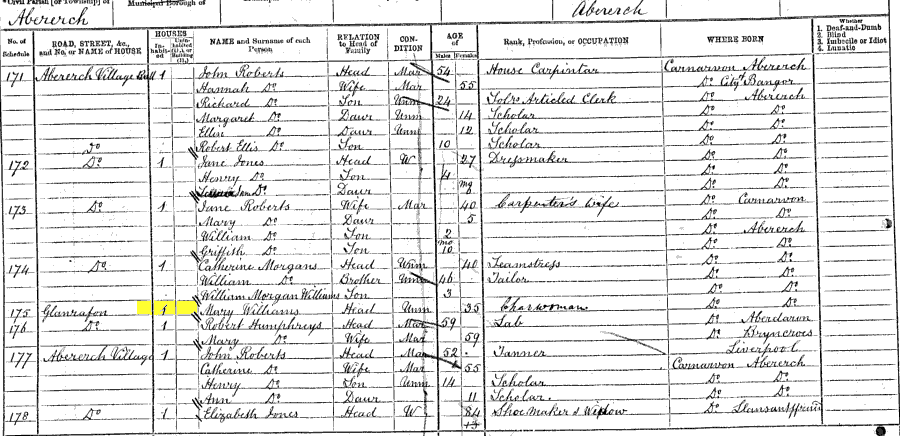 Civil Parish [or Township] of
Municipal Borough of
Abererch Abererch
No. of Schedule ROAD, STREET, &c., and No. or NAME of HOUSE HOUSES In-habited Unin-habited (U.), or (B.) NAME and Surname of each Person RELATION to Head of Family CON-DITION AGE of Males Females Rank, Profession, or OCCUPATION WHERE BORN Whether 1. Deaf-and-Dumb 2. Blind 3. Imbecile or Idiot 4. Lunatic
171 Abererch Village 1 John Roberts Head Mar 54 House Carpintar Carnarvon Abererch
Hannah Do Wife Mar 55 Do City of Bangor
Richard Do Son Unm 24 Solrs Articled Clerk Do Abererch
Margaret Do Daur Unm 14 Scholar Do Do
Ellin Do Daur Unm 12 Scholar Do Do
Do Robert Ellis Do Son 10 Scholar Do Do
172 Do 1 Jane Jones Head W 27 Dressmaker Do Do
Henry Do Son 4 Do Do
Do Daur Mo Do Do
173 Do 1 Jane Roberts Wife Mar 40 Carpenter's Wife Do Carnarvon
Mary Do Daur 5 Do Do
William Do Son 2 Do Abererch
Griffith Do Son mo 10 Do Do
174 Do 1 Catherine Morgans Head Unm 40 Seamstress Do Do
William Do Brother Unm 46 Tailor Do Do
William Morgan Williams Son 3 Do Do
175 Glanrafon 1 Mary Williams Head Unm 35 Charwoman Do Do
176 Do 1 Robert Humphreys Head Mar 59 Lab Do Aberdaron
Mary Do Wife Mar 59 Do Bryncroes
177 Abererch Village 1 John Roberts Head Mar 52 Tanner Liverpool
Catherine Do Wife Mar 55 Carnarvon Abererch
Henry Do Son Unm 14 Scholar Do Do
Ann Do Daur 11 Scholar Do Do
178 Do 1 Elizabeth Jones Head W 84 Shoemaker's Widow Do
13